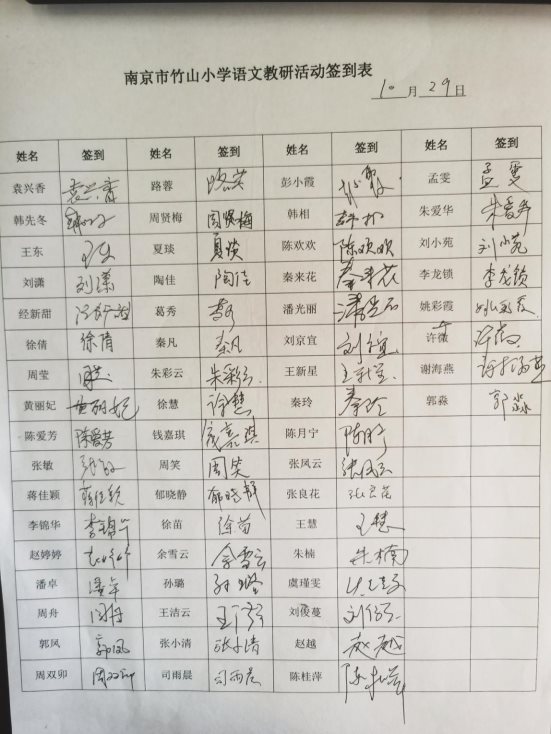 南京市竹山小学语文教研活动签到表
10 月 29 日
姓名 签到 姓名 签到 姓名 签到 姓名 签到
袁兴香 袁兴香 路蓉 路蓉 彭小霞 孟雯 孟雯
韩先冬 周贤梅 周贤梅 韩相 韩相 朱爱华 朱爱华
王东 王东 夏琰 夏琰 陈欢欢 陈欢欢 刘小苑 刘小苑
刘潇 刘潇 陶佳 陶佳 秦来花 秦来花 李龙锁 李龙锁
经新甜 葛秀 葛秀 潘光丽 潘光丽 姚彩霞 姚彩霞
徐倩 徐倩 秦凡 秦凡 刘京宜 刘京宜 许薇 许薇
周莹 周莹 朱彩云 朱彩云 王新星 王新星 谢海燕 谢海燕
黄丽妃 黄丽妃 徐慧 徐慧 秦玲 秦玲 郭淼 郭淼
陈爱芳 陈爱芳 钱嘉琪 钱嘉琪 陈月宁
张敏 张敏 周笑 周笑 张凤云 张凤云
蒋佳颖 蒋佳颖 郁晓静 郁晓静 张良花 张良花
李锦华 李锦华 徐苗 徐苗 王慧 王慧
赵婷婷 余雪云 余雪云 朱楠 朱楠
潘卓 潘卓 孙璐 孙璐 虞瑾雯
周舟 周舟 王洁云 刘俊蔓
郭凤 郭凤 张小清 张小清 赵越 赵越
周双卯 周双卯 司雨晨 司雨晨 陈桂萍 陈桂萍